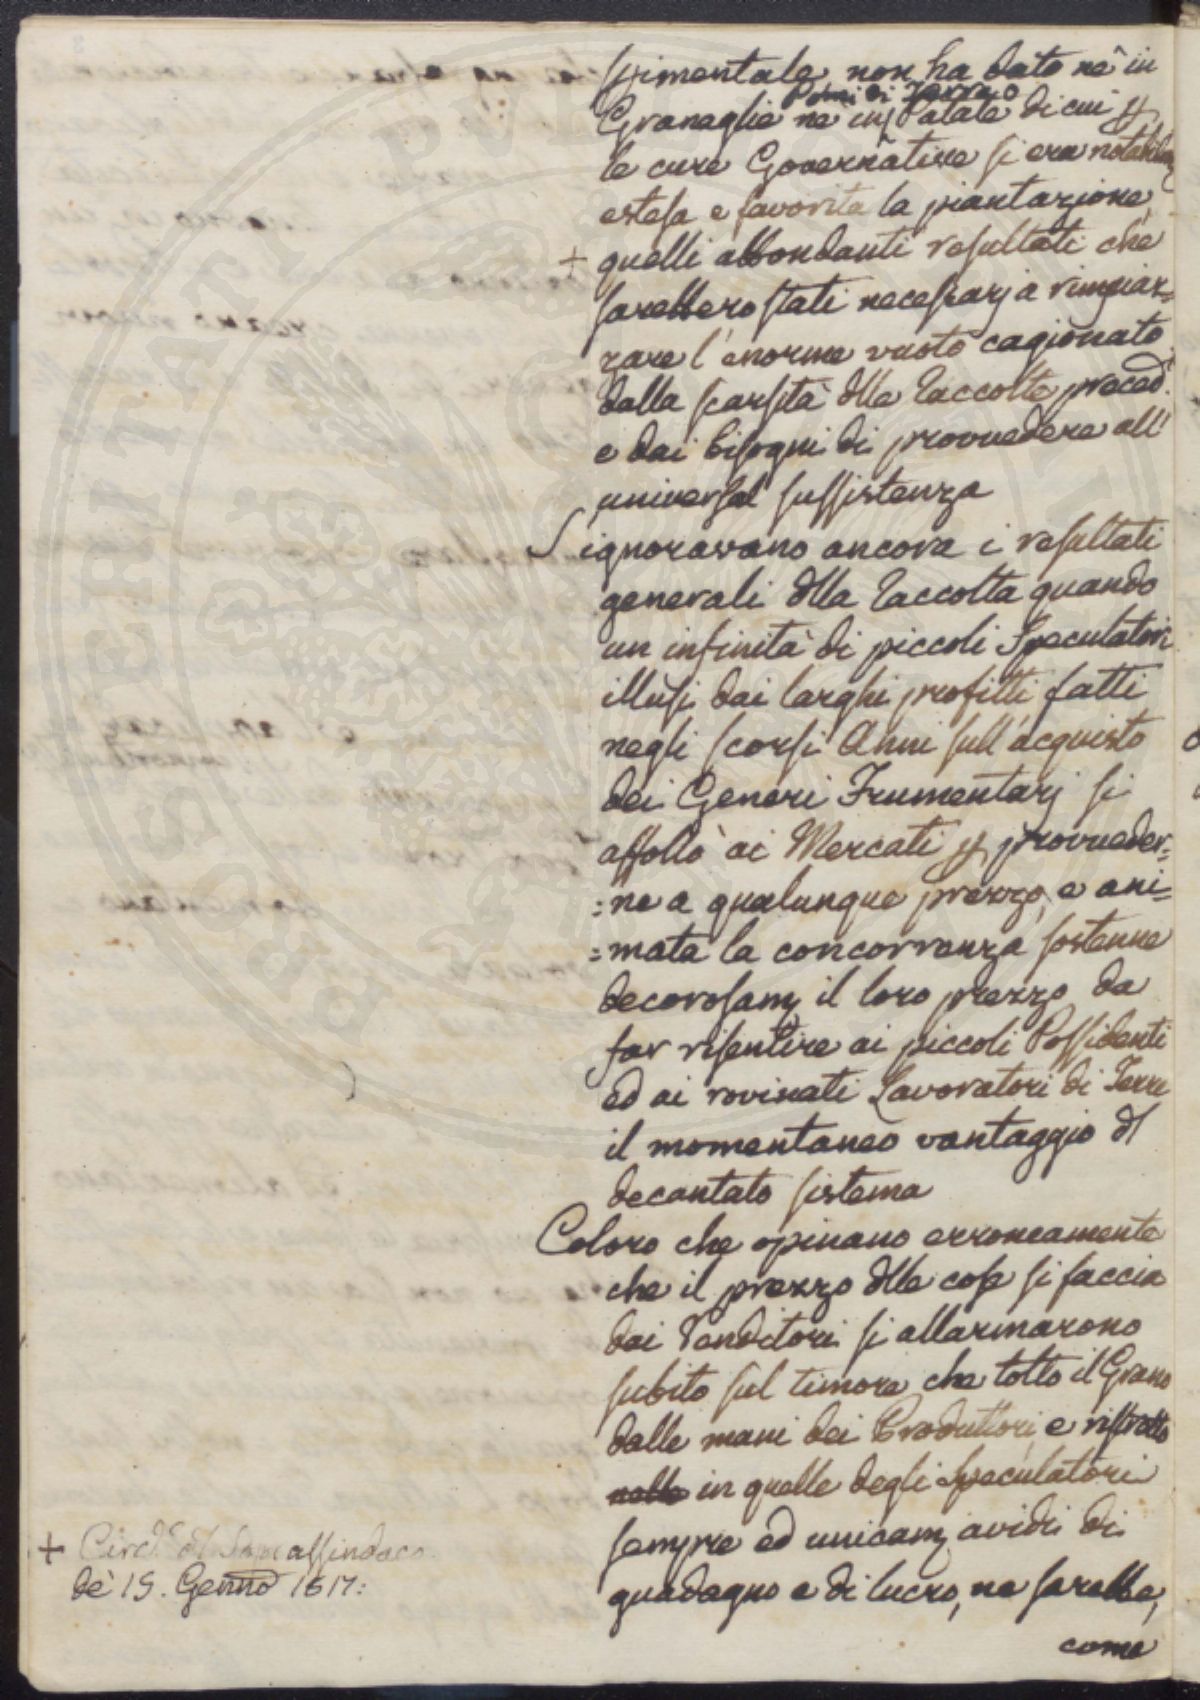 spimentale non ha dato nè in
Pomi di Terra o
Granaglie nè in Patate di cui p
le cure Governative si era notabilm
estesa e favorita la piantazione,
+ quelli abbondanti resultati che
sarebbero stati necessarj a rimpiaz=
zare l'enorme vuoto cagionato
dalla scarsità dlle raccolte preced.
e dai bisogni di provvedere all'
universal sussistenza
S'ignoravano ancora i resultati
generali dlla raccolta quando
un infinità di piccoli Speculatori
illusi dai larghi profitti fatti
negli scorsi Anni sull'acquisto
dei Generi Frumentarj si
affollò ai Mercati p provveder=
=ne a qualunque prezzo, e ani=
=mata la concorrenza sostenne
decorosam il loro prezzo da
far risentire ai piccoli Possidenti
ed ai rovinati Lavoratori di Terre
il momentaneo vantaggio dl
decantato sistema
Coloro che opinano erroneamente
che il prezzo dlle cose si faccia
dai Venditori si allarmarono
subito sul timore che tolto il Grano
dalle mani dei Produttori, e ristretto
nelle in quelle degli Speculatori
sempre ed unicam avidi di
guadagno e di lucro, ne sarebbe,
come
+ Circ. dl Soprassindaco
de' 15. Genno 1817:
PROSPERITATI PVBLICAE